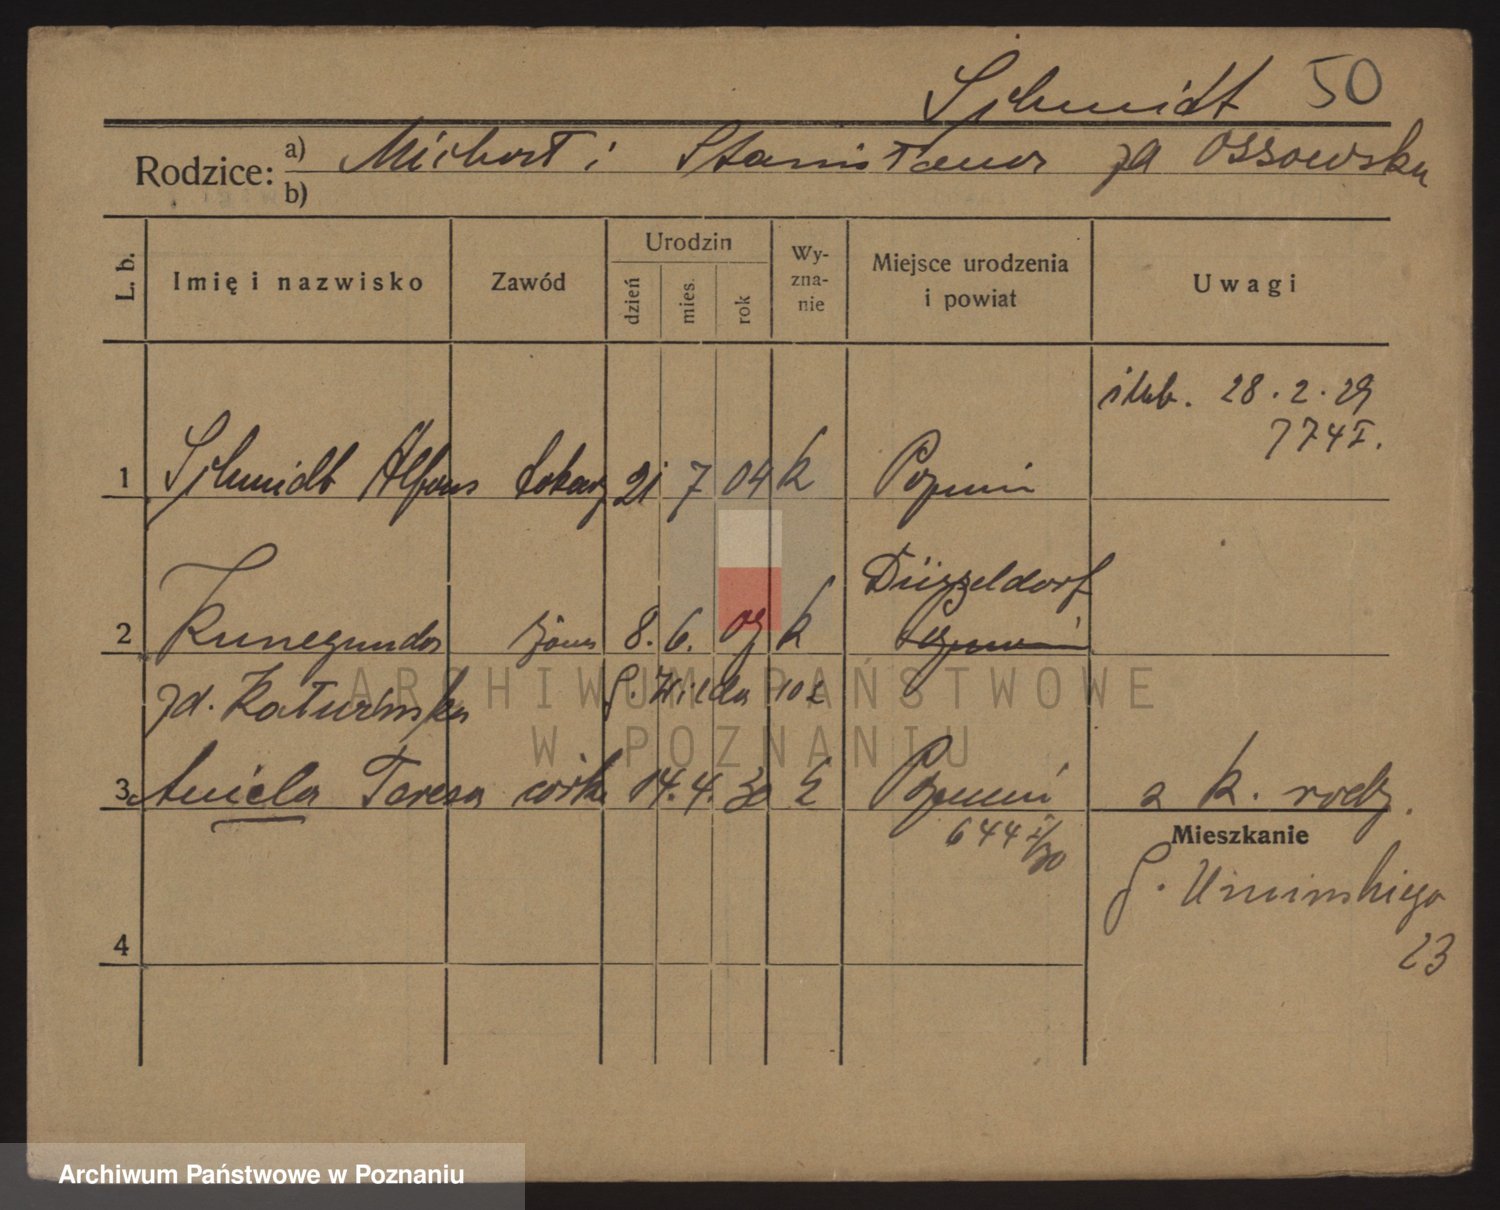 Schmidt 50
Rodzice: a) Michał i Stanisława zd Ossowska
b)
L. b. Imię i nazwisko Zawód Urodzin dzień mies. rok Wy-zna-nie Miejsce urodzenia i powiat Uwagi
ślub. 28.2.29
774 I.
1 Schmidt Alfons tokarz 21 7 04 k Poznań
Düsseldorf
2 Kunegunda żona 8. 6. k Poznań
zd. Katurińska G. Wilda
3 Aniela Teresa córka 14. 4. 30 k Poznań a k. rodz.
644 I/30
Mieszkanie
G. Umińskiego
23
4
ARCHIWUM PAŃSTWOWE
W POZNANIU
Archiwum Państwowe w Poznaniu